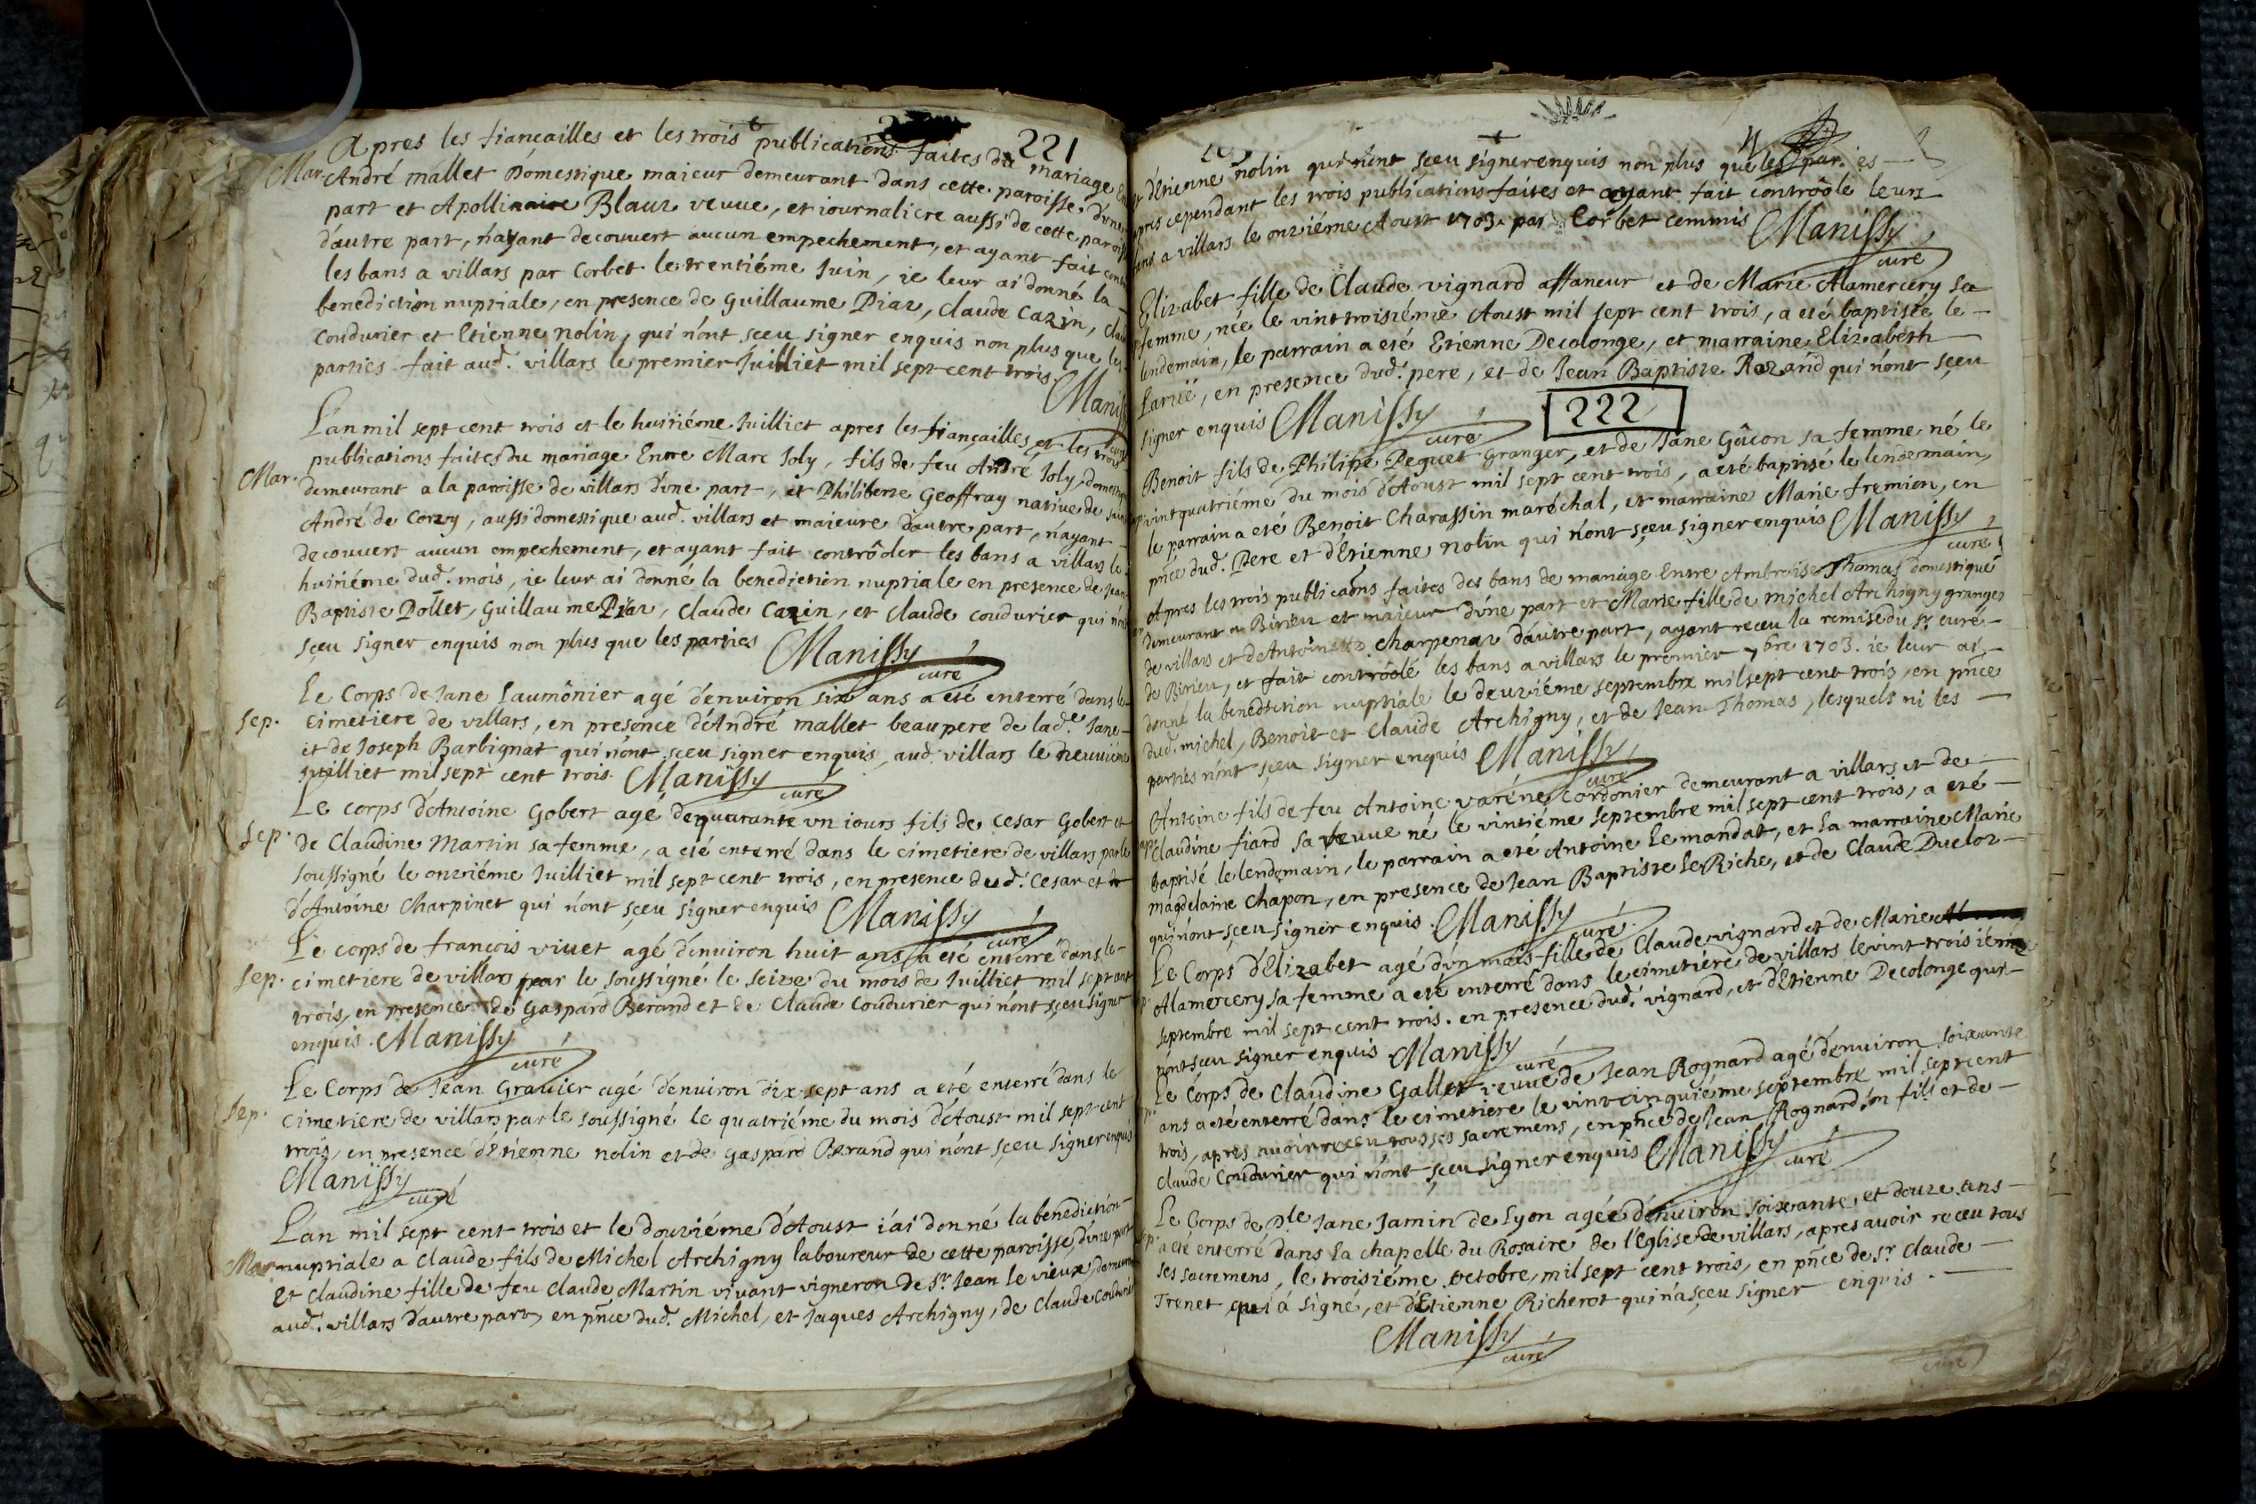 221
Mar. Apres les fiançailles et les trois publications faites du mariage
André mallet Domestique maieur demeurant dans cette paroisse, d'vne
part et Apollinaire Blanz veuue, et iournaliere aussi de cette paroisse
d'autre part, n'ayant decouvert aucun empechement, et ayant fait
les bans a villars par Corbet le trentiéme Juin, ie leur ai donné la
benediction nuptiale, en presence de Guillaume Piaz, Claude Cazin,
Coudurier et Etienne nolin, qui n'ont sçeu signer enquis non plus que les
parties fait aud. villars le premier Juilliet mil sept cent trois
L'an mil sept cent trois et le huitiéme Juilliet apres les fiançailles et les trois
publications faites du mariage Entre Marc Joly, fils de feu André Joly
Mar. demeurant a la paroisse de villars d'vne part, et Philiberte Geoffray native de
André de Corzy, aussi domestique aud. villars et maieure d'autre part, n'ayant
decouvert aucun empechement, et ayant fait contrôoler les bans a villars le
huitiéme dud. mois, ie leur ai donné la benediction nuptiale en presence de
Baptiste Pollet, Guillaume Piaz, Claude Cazin, et Claude coudurier qui
sçeu signer enquis non plus que les parties Manissy
curé
Le Corps de Jane Laumônier agé d'enuiron six ans a eté enterré dans le
Sep. Cimetiere de villars, en presence d'André mallet beaupere de lad.e Jane
et de Joseph Barbignat qui n'ont sçeu signer enquis, aud. villars le neuuiéme
Juilliet mil sept cent trois. Manissy
curé
Le corps d'Antoine Gobert agé de quarante vn iours fils de Cesar Gobert et
Sep. de Claudine Martin sa femme, a eté enterré dans le cimetiere de villars par le
soussigné le onziéme Juilliet mil sept cent trois, en presence dud. Cesar et
d'Antoine Charpinet qui n'ont sçeu signer enquis Manissy
curé
Le corps de françois viuet agé d'enuiron huit ans, a eté enterré dans le
Sep. cimetiere de villars par le soussigné le seize du mois de Juilliet mil sept cent
trois, en presence de Gaspard Berand et de Claude Coudurier qui n'ont sçeu signer
enquis. Manissy
curé
Le Corps de Jean Grauier agé d'enuiron dix sept ans a eté enterré dans le
Sep. Cimetiere de villars par le soussigné le quatriéme du mois d'Aoust mil sept cent
trois, en presence d'Etienne nolin et de Gaspard Berand qui n'ont sçeu signer enquis
Manissy
curé
L'an mil sept cent trois et le douziéme d'Aoust i'ai donné la benediction
Mar. nuptiale a Claude fils de Michel Archigny laboureur de cette paroisse, d'vne part
Et Claudine fille de feu Claude Martin vivant vigneron de St. Jean le vieux,
aud. villars d'autre part, en pñce dud. Michel, et Jaques Archigny, de Claude Coudurier
d'Etienne nolin qui n'ont sçeu signer enquis non plus que les parties
apres cependant les trois publications faites et ayant fait contrôolé leurs
bans a villars le onziéme Aoust 1703. par Corbet commis Manissy
curé
Elizabet fille de Claude vignard affaneur et de Marie Alamercery sa
femme, née le vint troisiéme Aoust mil sept cent trois, a eté baptisée le
lendemain, le parrain a eté Etienne Decolonge, et marraine Elizabeth
Lariié, en presence dud. pere, et de Jean Baptiste Rozand qui n'ont sçeu
signer enquis Manissy
curé
222
Benoit fils de Philipe Peguet Granger, et de Jane Gâcon sa femme né le
vint quatriéme du mois d'Aoust mil sept cent trois, a eté baptisé le lendemain,
le parrain a eté Benoit Charassin maréchal, et marraine Marie fremion, en
pñce dud. Pere et d'Etienne nolin qui n'ont sçeu signer enquis Manissy
curé
Apres les trois publicaõns faites des bans de mariage Entre Ambroise Thomas domestique
demeurant a Birieu et maieur d'vne part et Marie fille de michel Archigny granger
de villars et de Antoinette charpenaz d'autre part, ayant receu la remise du Sr. curé
de Birieu, et fait contrôolé les bans a villars le premier 7bre 1703. ie leur ai
donné la benediction nuptiale le deuziéme septembre mil sept cent trois, en pñce
dud. michel, Benoit et Claude Archigny, et de Jean Thomas, lesquels ni les
parties n'ont sçeu signer enquis Manissy
curé
Antoine fils de feu Antoine varéne Cordonier demeurant a villars et de
Claudine fiard sa veuue né le vintiéme septembre mil sept cent trois, a eté
baptisé le lendemain, le parrain a eté Antoine Lemandat, et la marraine Marie
magdelaine Chapon, en presence de Jean Baptiste LeRiche, et de Claude Dueloz
qui n'ont sçeu signer enquis. Manissy
curé
Le Corps d'Elizabet agé d'vn mois fille de Claude vignard et de Marie
Alamercery sa femme a eté enterré dans le cimetiere de villars le vint troisiéme
septembre mil sept cent trois. en presence dud. vignard, et d'Etienne Decolonge qui
n'ont sçeu signer enquis Manissy
curé
Le Corps de Claudine Gallet veuue de Jean Rognard agé d'enuiron soixante
ans a eté enterré dans le cimetiere le vint cinquiéme septembre mil sept cent
trois, apres auoir receu tous ses sacremens, en pñce de Jean Rognard son fils et de
Claude Coudurier qui n'ont sçeu signer enquis Manissy
curé
Le Corps de Dle Jane Jamin de Lyon agée d'enuiron soixante, et douze ans
a eté enterré dans la chapelle du Rosaire de l'eglise de villars, apres auoir receu tous
ses sacremens, le troisiéme octobre, mil sept cent trois, en pñce de Sr. Claude
Trenet, qui a signé, et d'Etienne Richerot qui n'a sçeu signer enquis.
Manissy
curé